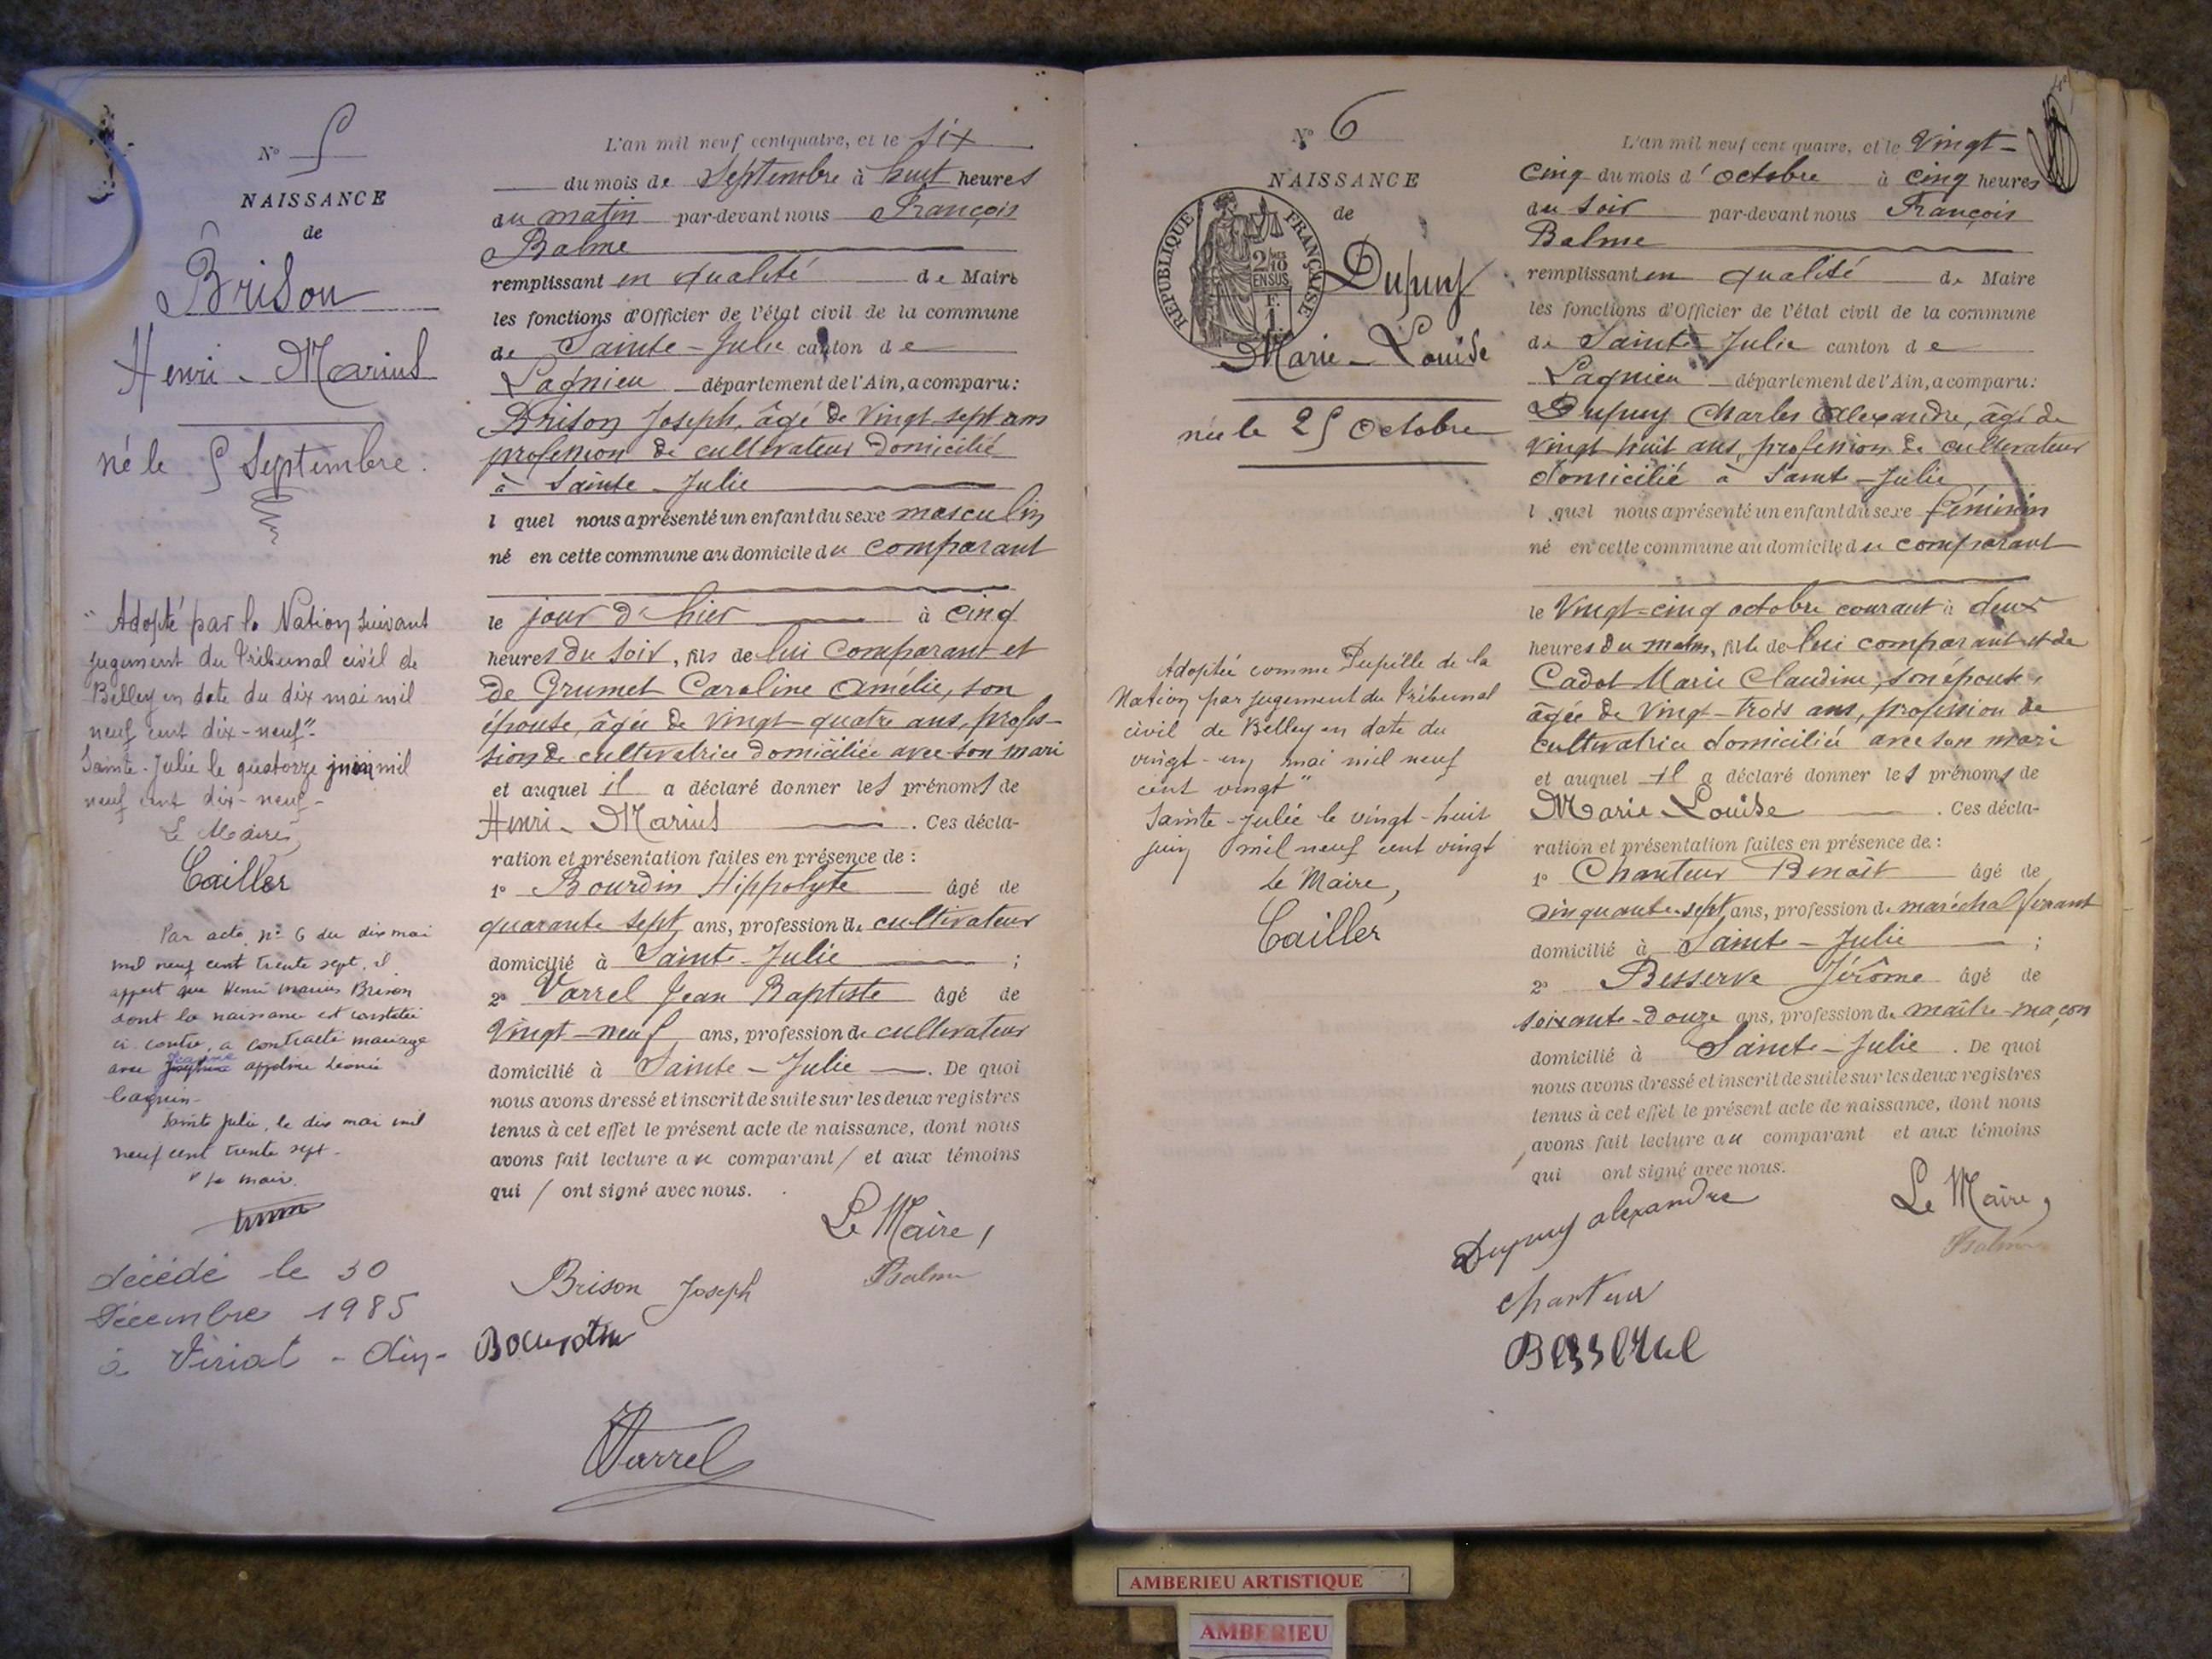 N° 5
NAISSANCE
de
Brison
Henri - Marius
né le 5 Septembre.
"Adopté par la Nation suivant
jugement du Tribunal civil de
Belley en date du dix mai mil
neuf cent dix-neuf"
Sainte-Julie le quatorze juin mil
neuf cent dix-neuf -
Le Maire,
Cailler
Par acte n° 6 du dix mai
mil neuf cent trente sept, il
appert que Henri Marius Brison
dont la naissance est constatée
ci contre, a contracté mariage
avec appoline Léonie
Sainte Julie, le dix mai mil
neuf cent trente sept -
P le maire.
décédé le 30
Décembre 1985
à Viriat - Ain -
L'an mil neuf cent quatre, et le six
du mois de Septembre à huit heures
du matin par-devant nous François
Balme
remplissant en qualité de Maire
les fonctions d'Officier de l'état civil de la commune
de Sainte-Julie canton de
Lagnieu département de l'Ain, a comparu:
Brison Joseph, âgé de vingt-sept ans
profession de cultivateur domicilié
à Sainte-Julie
l quel nous a présenté un enfant du sexe masculin
né en cette commune au domicile du comparant
le jour d'hier à cinq
heures du soir, fils de lui comparant et
de Grumet Caroline Amélie, son
épouse, âgée de vingt-quatre ans, profes-
sion de cultivatrice domiciliée avec son mari
et auquel il a déclaré donner les prénoms de
Henri - Marius . Ces décla-
ration et présentation faites en présence de :
1° Bourdin Hippolyte âgé de
quarante sept ans, profession de cultivateur
domicilié à Sainte-Julie ;
2° Varrel Jean Baptiste âgé de
Vingt-neuf ans, profession de cultivateur
domicilié à Sainte-Julie . De quoi
nous avons dressé et inscrit de suite sur les deux registres
tenus à cet effet le présent acte de naissance, dont nous
avons fait lecture au comparant / et aux témoins
qui / ont signé avec nous.
Le Maire,
Balme
Brison Joseph
Bourdin
Varrel
N° 6
NAISSANCE
de
REPUBLIQUE FRANÇAISE
2/10
EN SUS
F.
1
Dupuy
Marie-Louise
née le 25 Octobre
Adoptée comme Pupille de la
Nation par jugement du Tribunal
civil de Belley en date du
vingt-un mai mil neuf
cent vingt"
Sainte-Julie le vingt-huit
juin mil neuf cent vingt
Le Maire,
Cailler
L'an mil neuf cent quatre, et le Vingt-
cinq du mois d'octobre à cinq heures
du soir par-devant nous François
Balme
remplissant en qualité de Maire
les fonctions d'Officier de l'état civil de la commune
de Sainte-Julie canton de
Lagnieu département de l'Ain, a comparu:
Dupuy Charles Alexandre, âgé de
vingt-huit ans, profession de cultivateur
domicilié à Sainte-Julie
l quel nous a présenté un enfant du sexe féminin
né en cette commune au domicile du comparant
le Vingt-cinq octobre courant à deux
heures du matin, fille de lui comparant et de
Cadot Marie Claudine, son épouse,
âgée de vingt-trois ans, profession de
cultivatrice domiciliée avec son mari
et auquel il a déclaré donner les prénoms de
Marie Louise . Ces décla-
ration et présentation faites en présence de :
1° Chanteur Benoît âgé de
cinquante-sept ans, profession de maréchal ferrant
domicilié à Sainte-Julie ;
2° Besserve Jérôme âgé de
soixante-douze ans, profession de maître-maçon
domicilié à Sainte-Julie . De quoi
nous avons dressé et inscrit de suite sur les deux registres
tenus à cet effet le présent acte de naissance, dont nous
avons fait lecture au comparant et aux témoins
qui ont signé avec nous.
Le Maire,
Balme
Dupuy alexandre
chanteur
Besserve
AMBERIEU ARTISTIQUE
AMBERIEU